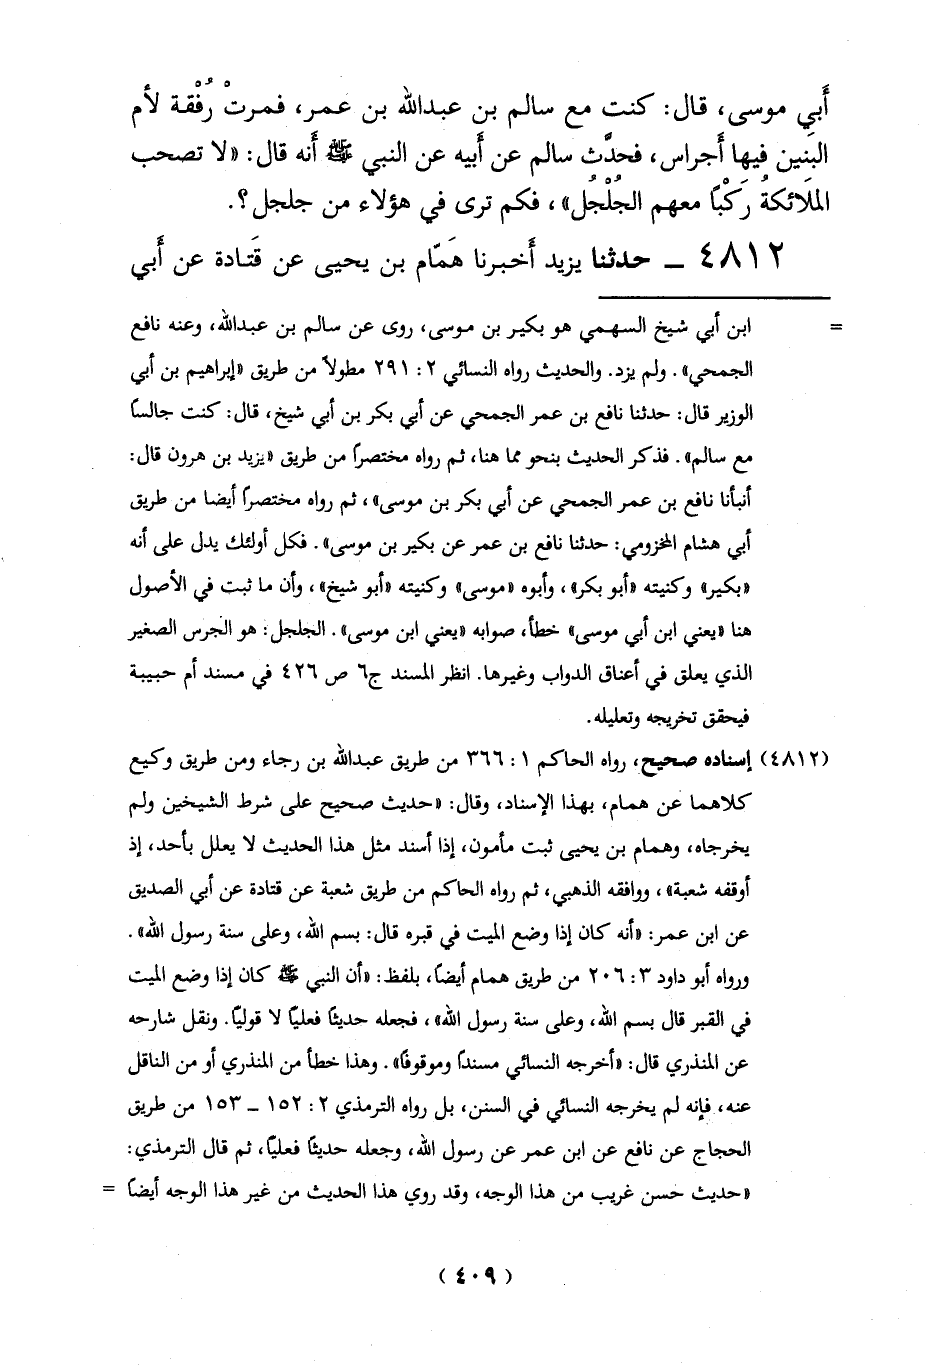 أَبي موسى، قال: كنت مع سالم بن عبدالله بن عمر، فمرتْ رُفْقة لأم
البَنِين فيها أَجراس، فحدَّث سالم عن أَبيه عن النبي ﷺ أَنه قال: «لا تصحب
الملَائكةُ رَكْبًا معهم الجُلْجُل»، فكم ترى في هؤلاء من جلجل؟.
٤٨١٢ ـ حدثنا يزيد أَخبرنا هَمّام بن يحيى عن قَتادة عن أَبي
= ابن أبي شيخ السهمي هو بكير بن موسى، روى عن سالم بن عبدالله، وعنه نافع
الجمحي». ولم يزد. والحديث رواه النسائي ٢: ٢٩١ مطولاً من طريق «إبراهيم بن أبي
الوزير قال: حدثنا نافع بن عمر الجمحي عن أبي بكر بن أبي شيخ، قال: كنت جالسًا
مع سالم». فذكر الحديث بنحو مما هنا، ثم رواه مختصرًا من طريق «يزيد بن هرون قال:
أنبأنا نافع بن عمر الجمحي عن أبي بكر بن موسى»، ثم رواه مختصرًا أيضا من طريق
أبي هشام المخزومي: حدثنا نافع بن عمر عن بكير بن موسى». فكل أولئك يدل على أنه
«بكير» وكنيته «أبو بكر»، وأبوه «موسى» وكنيته «أبو شيخ»، وأن ما ثبت في الأصول
هنا «يعني ابن أبي موسى» خطأ، صوابه «يعني ابن موسى». الجلجل: هو الجرس الصغير
الذي يعلق في أعناق الدواب وغيرها. انظر المسند ج٦ ص ٤٢٦ في مسند أم حبيبة
فيحقق تخريجه وتعليله.
(٤٨١٢) إسناده صحيح، رواه الحاكم ١: ٣٦٦ من طريق عبدالله بن رجاء ومن طريق وكيع
كلاهما عن همام، بهذا الإسناد، وقال: «حديث صحيح على شرط الشيخين ولم
يخرجاه، وهمام بن يحيى ثبت مأمون، إذا أسند مثل هذا الحديث لا يعلل بأحد، إذ
أوقفه شعبة»، ووافقه الذهبي، ثم رواه الحاكم من طريق شعبة عن قتادة عن أبي الصديق
عن ابن عمر: «أنه كان إذا وضع الميت في قبره قال: بسم الله، وعلى سنة رسول الله».
ورواه أبو داود ٣: ٢٠٦ من طريق همام أيضًا، بلفظ: «أن النبي ﷺ كان إذا وضع الميت
في القبر قال بسم الله، وعلى سنة رسول الله»، فجعله حديثًا فعليًا لا قوليًا. ونقل شارحه
عن المنذري قال: «أخرجه النسائي مسندًا وموقوفًا». وهذا خطأ من المنذري أو من الناقل
عنه، فإنه لم يخرجه النسائي في السنن، بل رواه الترمذي ٢: ١٥٢ ـ ١٥٣ من طريق
الحجاج عن نافع عن ابن عمر عن رسول الله، وجعله حديثًا فعليًا، ثم قال الترمذي:
«حديث حسن غريب من هذا الوجه، وقد روي هذا الحديث من غير هذا الوجه أيضًا =
(٤٠٩)